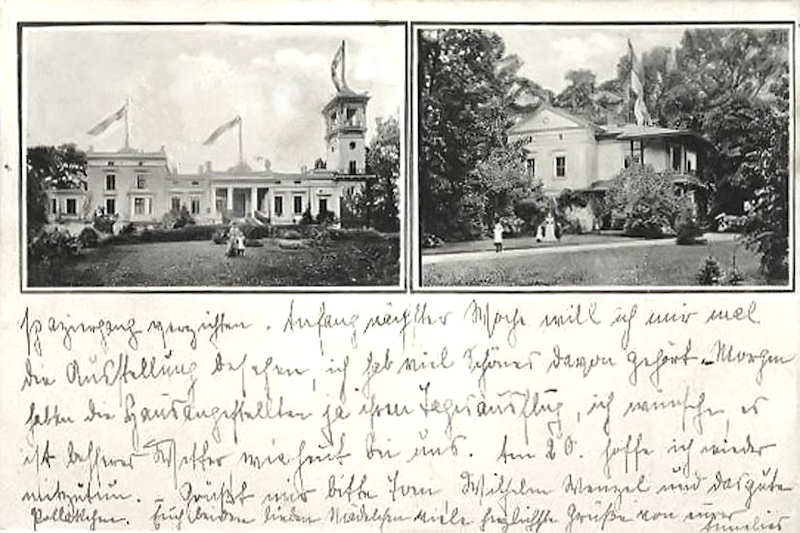 spaziergang verzichten. Anfang nächster Woche will ich mir mal
die Ausstellung besehen, ich hab viel Schönes davon gehört. Morgen
haben die Hausangestellten ja ihren Tagesausflug, ich wünsche, es
ist besseres Wetter wie heut bei uns. Am 20. hoffe ich wieder
mitzutun. – Grüßt mir bitte Wilhelm Wenzel und das gute
Euch beiden lieben Mädelchen viele herzlichste Grüße von eurer
Annelies